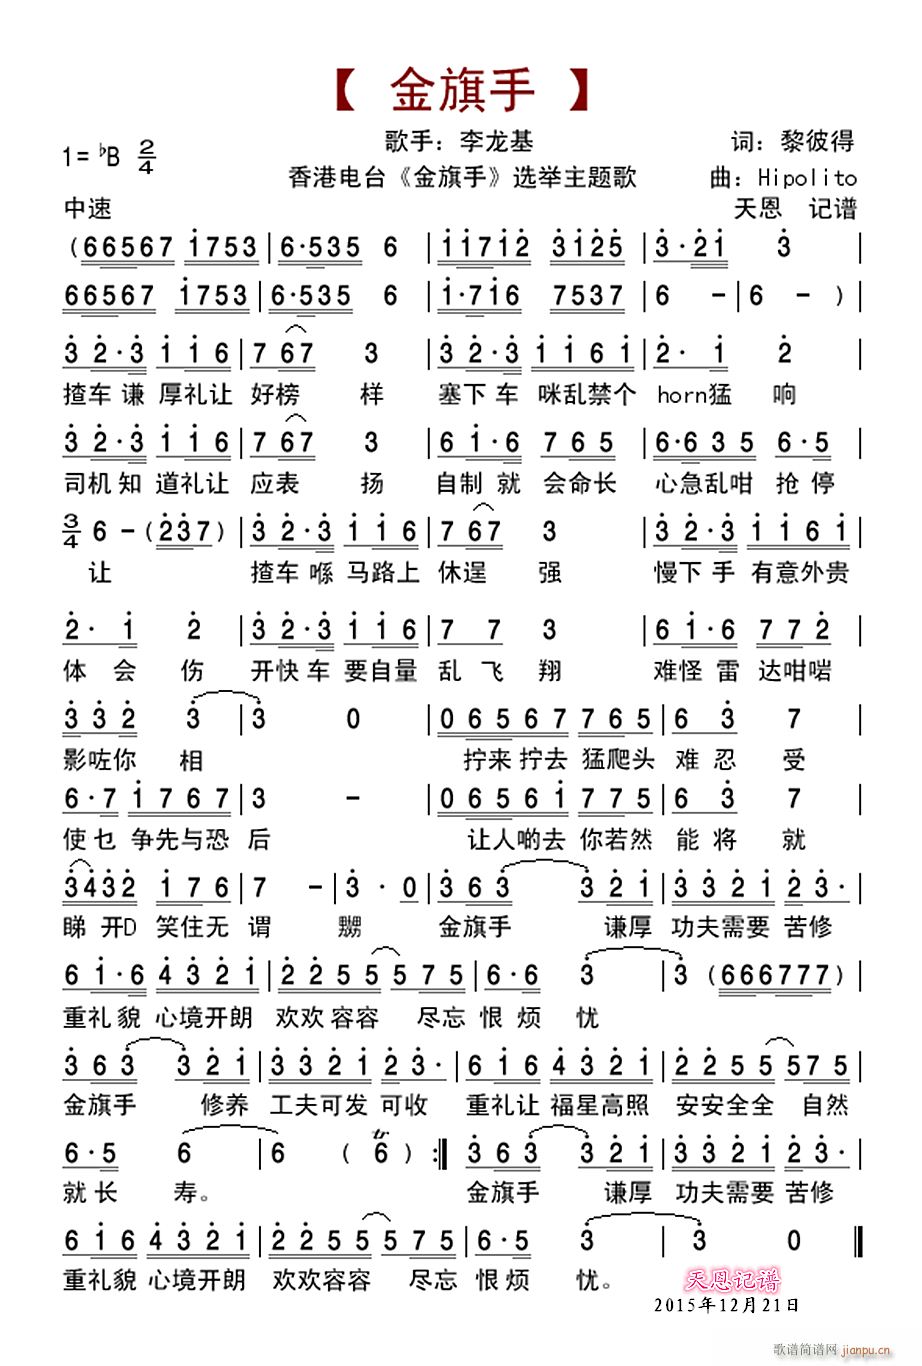 【 金旗手 】
歌手：李龙基 词：黎彼得
1=♭B 2/4
香港电台《金旗手》选举主题歌 曲：Hipolito
中速 天恩 记谱
(66567 i753|6·535 6 |ii7i2 3i25|3·2i 3 |
66567 i753|6·535 6 |i·7i6 7537|6 -|6 -)|
3 2·3 i i 6|7 67 3 |3 2·3 i i 6 i|2· i 2
揸车谦 厚礼让 好榜 样 塞下车 咪乱禁个 horn猛 响
3 2·3 i i 6|7 67 3 |6 i·6 7 6 5|6·6 3 5 6·5|
司机知 道礼让 应表 扬 自制就 会命长 心急乱咁 抢停
3/4 6 -(237)|3 2·3 i i 6|7 67 3 |3 2·3 i i 6 i|
让 揸车喺 马路上 休逞 强 慢下手 有意外贵
2· i 2 |3 2·3 i i 6|7 7 3 |6 i·6 7 7 2|
体会 伤 开快车 要自量 乱飞 翔 难怪雷 达咁啱
3 3 2 3 |3 0 |0 6 5 6 7 7 7 6 5|6 3 7 |
影咗你 相 拧来拧去 猛爬头 难忍 受
6·7 i 7 6 7|3 - |0 6 5 6 i 7 7 5|6 3 7 |
使乜 争先与恐 后 让人啲去 你若然 能将 就
3432 i 7 6|7 -|3· 0|3 6 3 3 2 i|3 3 2 i 2 3·|
睇开D 笑住无 谓 嬲 金旗手 谦厚 功夫需要 苦修
6 i·6 4 3 2 i|2 2 5 5 5 7 5|6·6 3 |3 (666777)|
重礼貌 心境开朗 欢欢容容 尽忘 恨烦 忧
3 6 3 3 2 i|3 3 2 i 2 3·|6 i 6 4 3 2 i|2 2 5 5 5 7 5|
金旗手 修养 工夫可发 可收 重礼让 福星高照 安安全全 自然
6·5 6 |6 ( tr 6 ):‖3 6 3 3 2 i|3 3 2 i 2 3·|
就长 寿。 金旗手 谦厚 功夫需要 苦修
6 i i 6 4 3 2 i|2 2 5 5 5 7 5|6·5 3 |3 0 ‖
重礼貌 心境开朗 欢欢容容 尽忘 恨烦 忧。
天恩记谱
2015年12月21日
歌谱简谱网 jianpu.cn